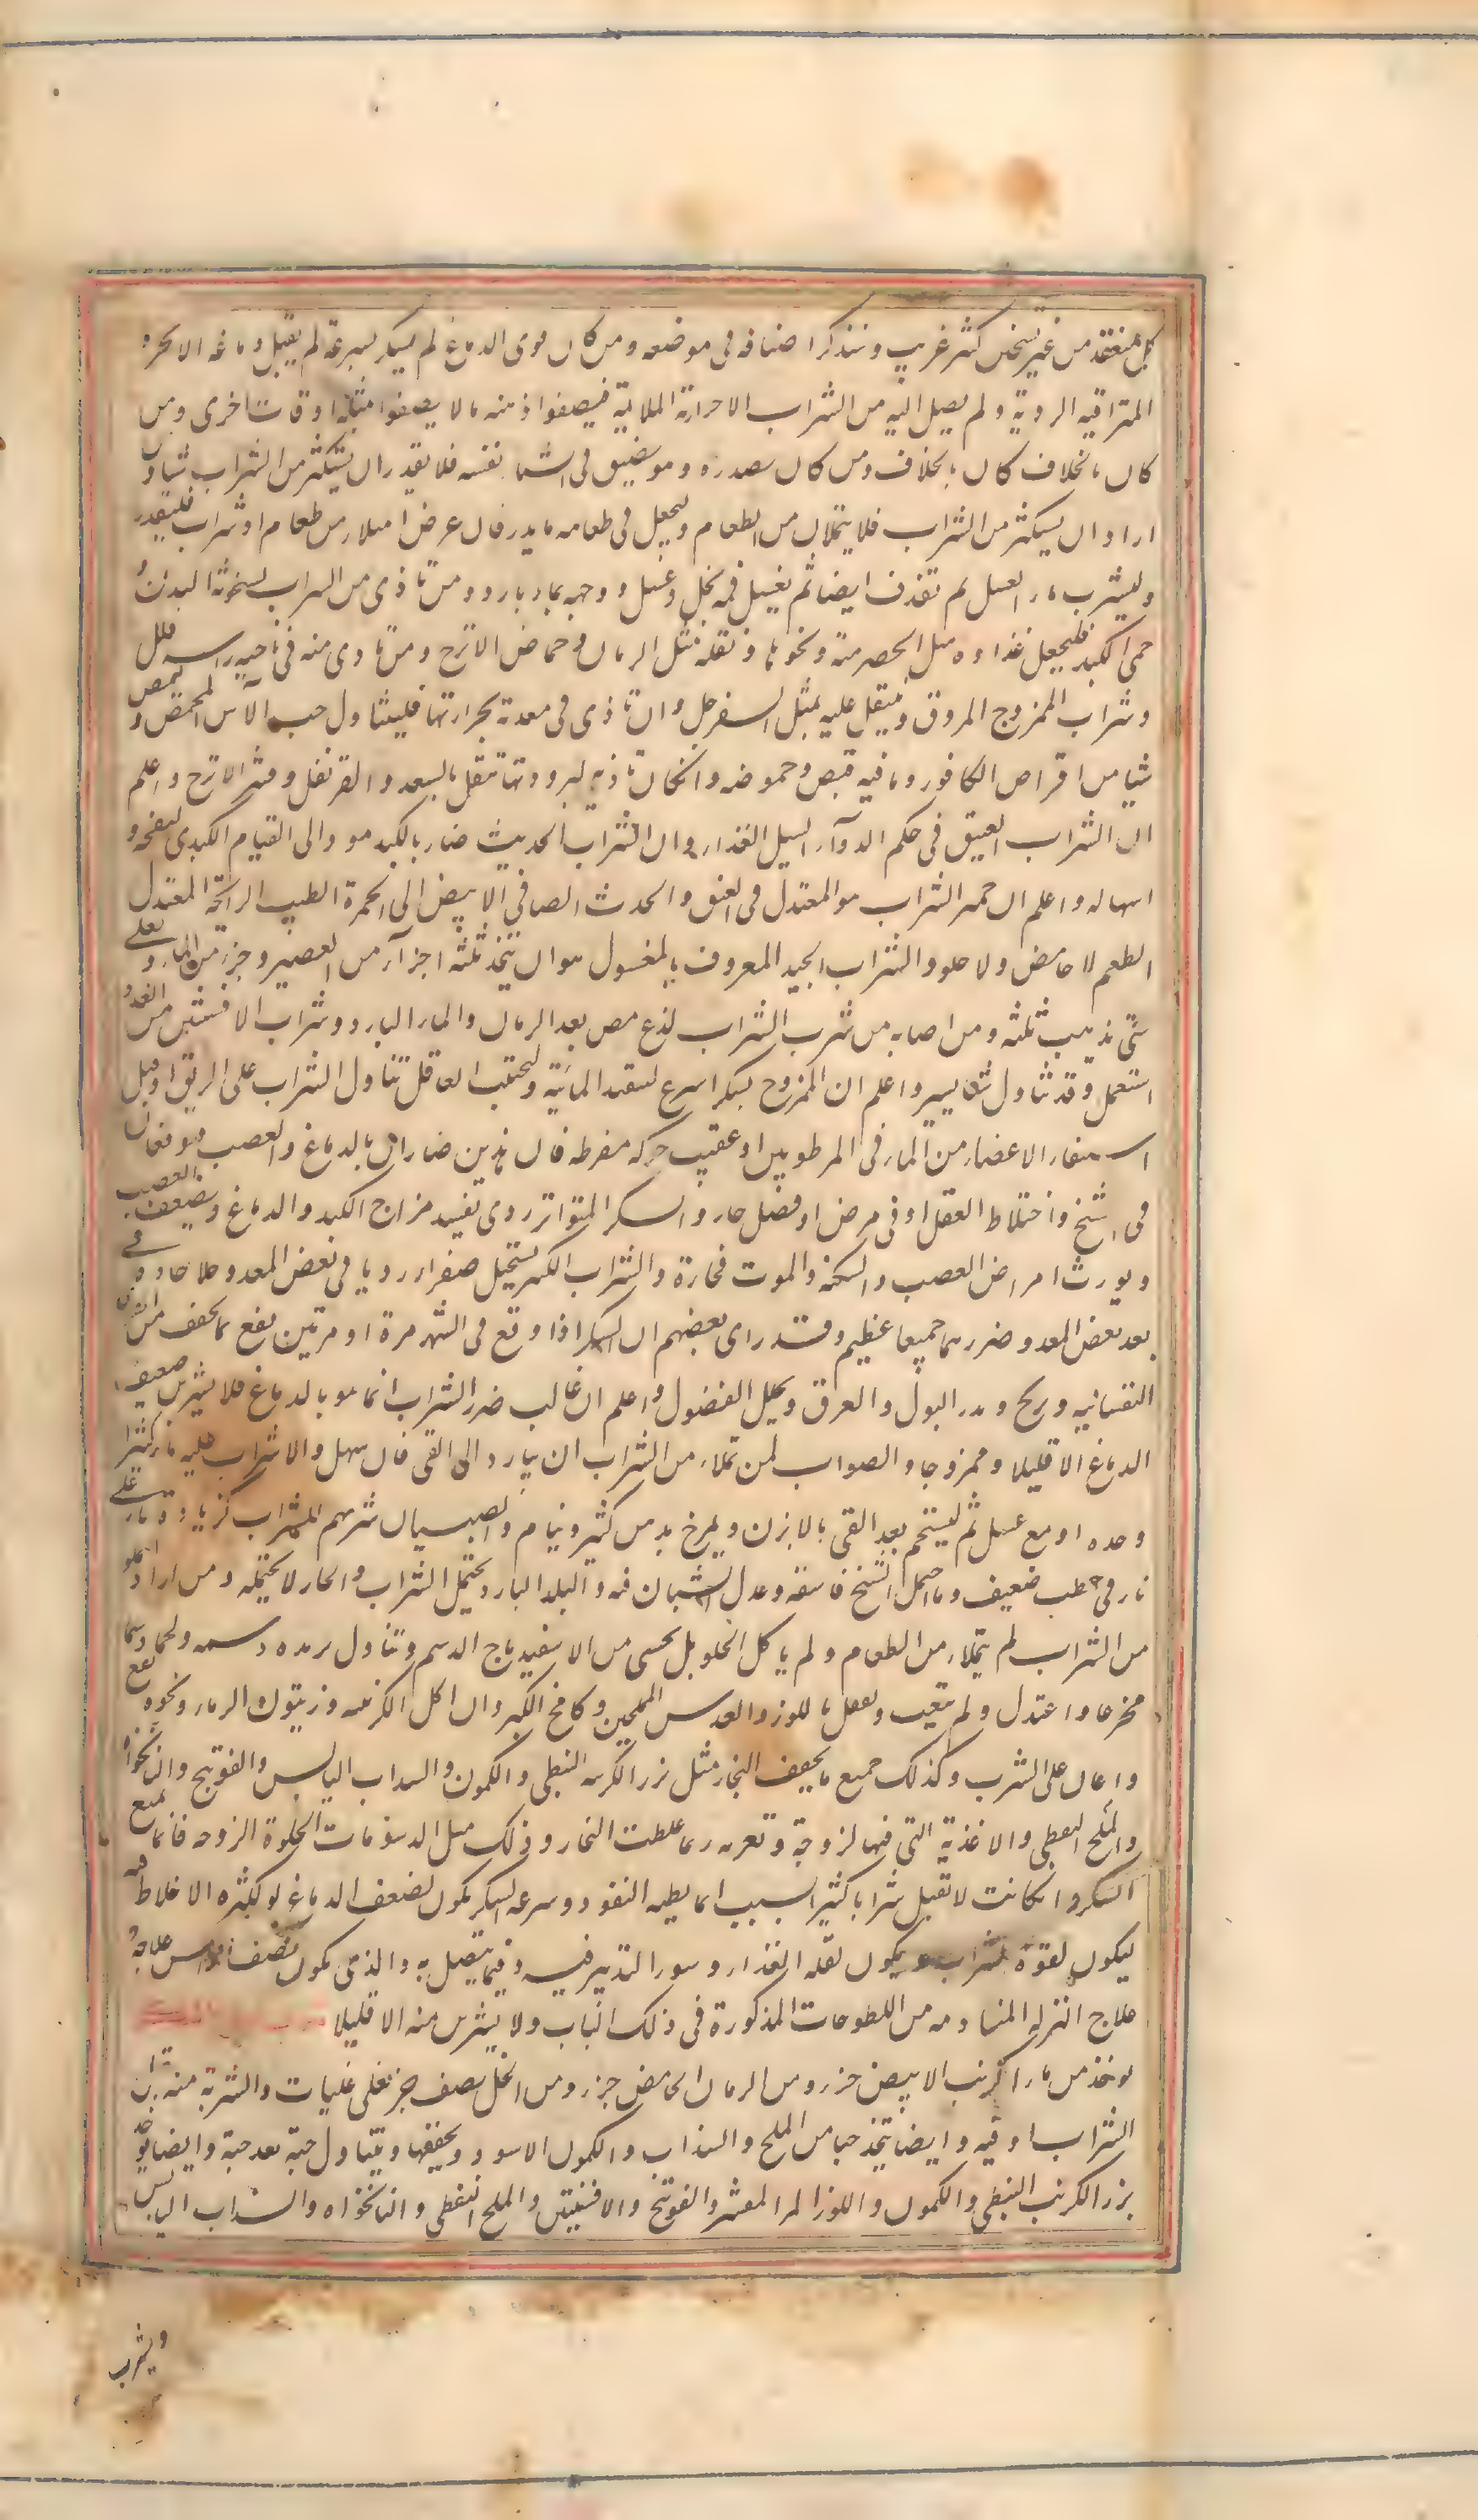 كل منعقد من غير تسخين كثير غريب وسنذكر اصنافه في موضعه ومن كان قوى الدماغ لم يسكر بسرعة لم يقبل دماغه الابخرة
المتراقيه الردية ولم يصل اليه من الشراب الا حرارته الملايمة فيصفوا ذهنه ما لا يصفوا بمثلها اوقات اخرى ومن
كان بالخلاف كان بالخلاف ومن كان بصدره وهو ضيق في الشتاء نفسه فلا يقدر ان يستكثر من الشراب شيئا ومن
اراد ان يستكثر من الشراب فلا يتملان من الطعام وليجعل في طعامه ما يدر فان عرض امتلاء من طعام او شراب فليقذف
وليشرب ماء العسل ثم يقذف ايضا ثم يغسل فمه بخل وعسل ووجهه بماء بارد ومن تاذى من الشراب بسخونة البدن و
حمى الكبد فليجعل غذاوه مثل الحصرمية ونحوها ونقله مثل الرمان وحماض الاترج ومن تاذى منه في ناحية راسه قلل
وشراب الممزوج المروق وينتقل عليه بمثل السفرجل وان تاذى في معدة بحرارتها فليتناول حب الآس المحمص و
شيا من اقراص الكافور وما فيه قبض وحموضه وان كان تاذيه لبرودتها تنقل بالسعد والقرنفل وقشر الاترج واعلم
ان الشراب العتيق في حكم الدوآء ليس الغذاء وان الشراب الحديث ضار بالكبد مود الى القيام الكبدى لنفخه و
اسهاله واعلم ان خير الشراب هو المعتدل في العتق والحدث الصافي الابيض الى الحمرة الطيب الرائحة المعتدل
الطعم لا حامض ولا حلو والشراب الجيد المعروف بالمغسول هو ان يتخذ ثلثة اجزآء من العصير وجزء من الماء ويغلى
حتى يذهب ثلثه ومن اصابه من شرب الشراب لذع مص بعد الرمان والماء البارد وشراب الافسنتين من الغد و
استعمل وقد تناول شيئا يسير واعلم ان الممزوج يسكر اسرع لتنفيذ المائية وليجتنب العاقل تناول الشراب على الريق او قبل
استيفاء الاعضاء من الماء في المرطوبين او عقيب حركة مفرطه فان هذين ضاران بالدماغ والعصب ويوقعان
في التشنج واختلاط العقل او في مرض او فضل حار والسكر المتواتر ردى يفسد مزاج الكبد والدماغ ويضعف العصب
ويورث امراض العصب والسكتة والموت فجاءة والشراب الكثير يستحيل صفراء رديا في بعض المعد وخلا حاذقا في
بعد بعض المعد وضررهما جميعا عظيم وقد راى بعضهم ان السكر اذا وقع في الشهر مرة او مرتين نفع بما يخفف من القوى
النفسانيه ويريح ويدر البول والعرق ويحلل الفضول واعلم ان غالب ضرر الشراب انما هو بالدماغ فلا يشربن ضعيف
الدماغ الا قليلا وممزوجا والصواب لمن تملاء من الشراب ان يبادر الى القى فان سهل والا شراب عليه ماء كثيرا
وحده او مع عسل ثم ليستحم بعد القى بالابزن ويمرخ بدهن كثير وينام والصبيان شربهم الشراب كزيادة نار على
نار في حطب ضعيف وما احتمل الشيخ فاسقه وعدل الشبان فيه والبلد البارد يحتمل الشراب والحار لا يحتمله ومن اراد الاملاء
من الشراب لم يتملاء من الطعام ولم ياكل الحلو بل يحسى من الاسفيدباج الدسم وتناول ثريده دسمه ولحما دسما
مخرعا واعتدل ولم يتعب وتنقل باللوز والعدس المملحين وكامخ الكبر وان اكل الكرنبيه وزيتون الماء ونحوه نفع
واعان على الشرب وكذلك جميع ما يجفف البخار مثل بزر الكرنب النبطي والكمون والسداب اليابس والفوتنج والنانخواه
والملح النفطي والاغذية التي فيها لزوجة وتغريه ربما غلظت البخار وذلك مثل الدسومات الحلوة اللزوجه فانها تمنع
السكر وان كانت لا تقبل شرابا كثيرا بسبب انها بطيه النفوذ وسرعة السكر يكون لضعف الدماغ او لكثره الاخلاط فيه
ليكون لقوة الشراب ويكون لقلة الغذاء وسوء التدبير فيه وفيما يتصل به والذي يكون لضعف الراس علاجه
علاج النزلة المتقادمه من اللطوخات المذكورة في ذلك الباب ولا يشربن منه الا قليلا
يوخذ من ماء الكرنب الابيض جزء ومن الرمان الحامض جزء ومن الخل نصف جزء يغلى غليات والشربة منه قبل
الشراب اوقيه وايضا يتخذ حبا من الملح والسذاب والكمون الاسود ويجففها ويتناول حبة بعد حبة وايضا يوخذ
بزر الكرنب النبطي والكمون واللوز المر المقشر والفوتنج والافسنتين والملح النفطي والنانخواه والسذاب اليابس
ويشرب